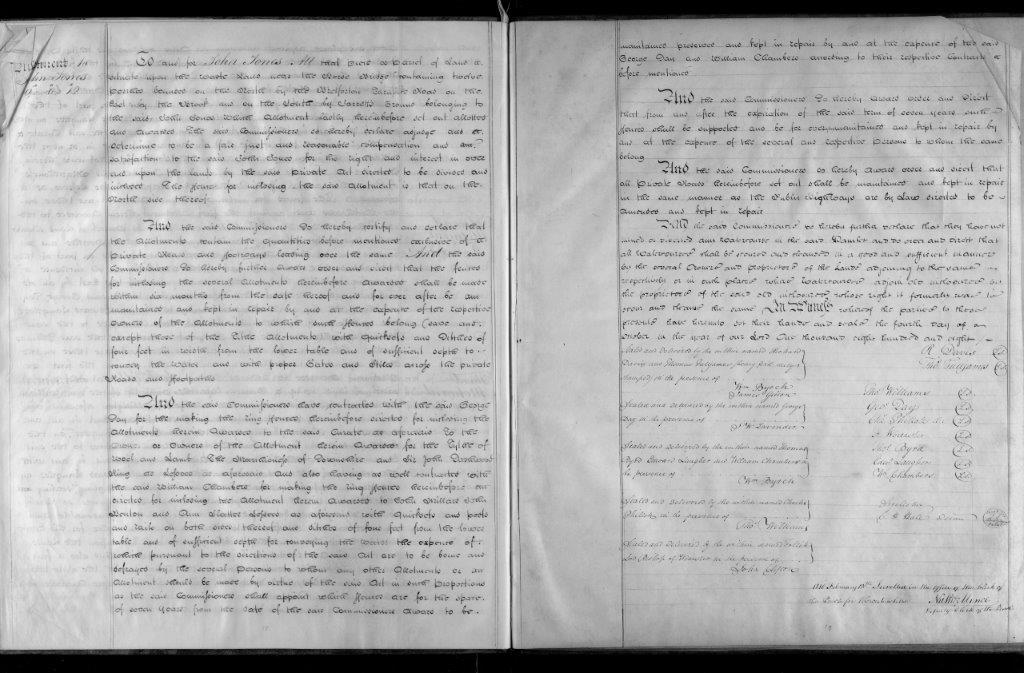 Allotment to
John Jones
To and for John Jones All that Piece or Parcel of Land
situate upon the Waste Lands near the Bridge containing twelve
Perches bounded on the North by the Road on the
East by the Brook and on the South by Ground belonging to
the said John Jones Which Allotment lastly hereinbefore set out allotted
and Awarded The said Commissioners do hereby declare adjudge and
determine to be a fair just and reasonable compensation and
satisfaction to the said John Jones for his right and interest in over
and upon the lands by the said Private Act directed to be divided and
inclosed The Fence for inclosing the said Allotment is that on the
North side thereof
And the said Commissioners Do hereby certify and declare that
the Allotments contain the Quantities before mentioned exclusive of
Private Roads and footways leading over the same And the said
Commissioners Do hereby further award order and direct that the fences
for inclosing the several Allotments hereinbefore awarded shall be made
within six months from the date hereof and for ever after be
maintained and kept in repair by and at the expence of the respective
Owners of the Allotments to which such Fences belong save and
except those of the Tithe Allotments with Quicksets and Ditches of
four feet in width from the lower table and of sufficient depth to
convey the Water and with proper Gates and Stiles across the private
Roads and footpaths
And the said Commissioners have contracted with the said George
Day for the making the ring Fences hereinbefore directed for inclosing the
Allotments herein Awarded to the said Curate as aforesaid To the
Owner or Owners of the Allotment herein Awarded for the Tythe of
Wool and Lamb The Marchioness of Downshire and Sir John Dashwood
King as Lessees as aforesaid And also having as well contracted with
the said William Chambers for making the ring Fences hereinbefore
directed for inclosing the Allotment herein Awarded to John Willard John
and Ann Lessees as aforesaid with Quicksets and posts
and rails on both sides thereof and ditches of four feet from the lower
table and of sufficient depth for conveying the Water the expence of
which pursuant to the directions of the said Act are to be borne and
defrayed by the several Persons to whom any other Allotments or an
Allotment should be made by virtue of the said Act in such Proportions
as the said Commissioners shall appoint which Fences are for the space
of seven Years from the date of the said Commissioners Award to be
maintained preserved and kept in repair by and at the expence of the said
George Day and William Chambers according to their respective Contracts
before mentioned
And the said Commissioners Do hereby Award order and direct
that from and after the expiration of the said term of seven years such
Fences shall be supported and be for ever maintained and kept in repair by
and at the expence of the several and respective Persons to whom the same
belong
And the said Commissioners do hereby award order and direct that
all Private Roads hereinbefore set out shall be maintained and kept in repair
in the same manner as the Public Highways are by Law directed to be
amended and kept in repair
And the said Commissioners do hereby further declare that they have not
turned or diverted any Watercourse in the said Hamlet and do order and direct that
all Watercourses shall be scoured and cleansed in a good and sufficient manner
by the several Owners and proprietors of the Lands adjoining to the same
respectively or in such places where Watercourses adjoin old inclosures
the proprietors of the said old inclosures whose right it formerly was to
scour and cleanse the same In Witness whereof the parties to these
presents have hereunto set their hands and seals the fourth day of
October in the year of our Lord One thousand eight hundred and eight
Sealed and delivered by the within named Richard
Davis and Thomas Fulljames being first duly
stamped in the presence of
Wm Byrch
James
R Davis
Thos Fulljames
Sealed and delivered by the within named George
Day in the presence of
Wm Lavender
Thos Williams
Geo Day
Sealed and delivered by the within named Thomas
Byrch Edward Laugher and William Chambers
in the presence of
Wm Byrch
Thos Byrch
Edwd Laugher
Wm Chambers
Sealed and delivered by the within named Charles
in the presence of
Thos Williams
Sealed and delivered by the within named
Lord Bishop of Worcester in the presence of
John Clifton
1810 February 13th Inrolled in the Office of the Clerk of
the Peace for Worcestershire
Deputy Clerk of the Peace